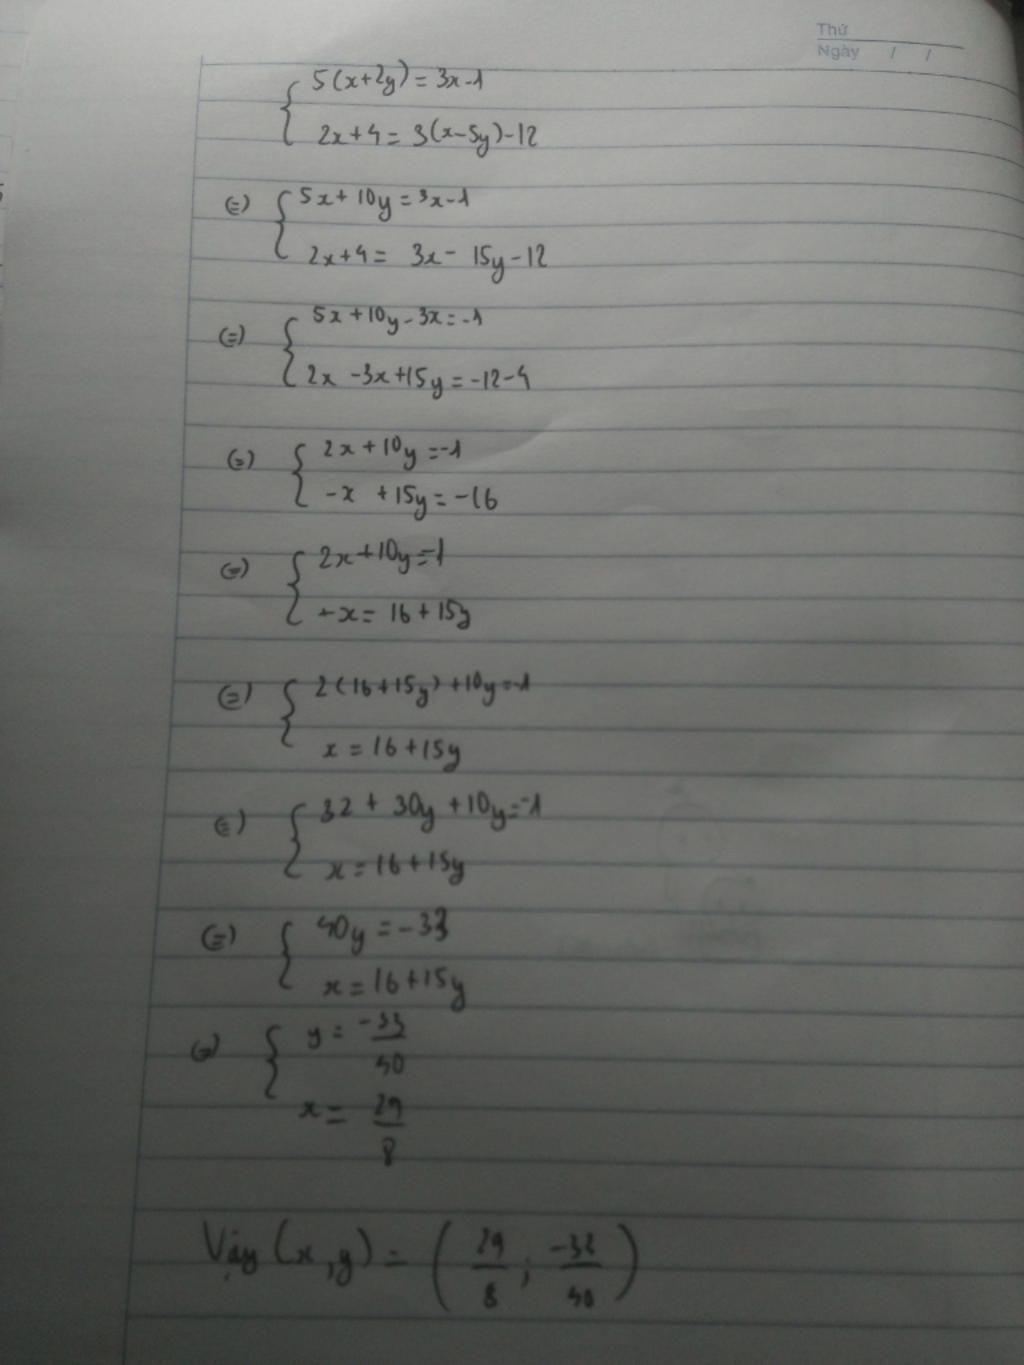 Thứ
Ngày / /
{ 5(x+2y) = 3x-1
2x+4 = 3(x-5y)-12
(=) { 5x+10y = 3x-1
2x+4 = 3x- 15y-12
(=) { 5x+10y-3x=-1
2x -3x+15y = -12-4
(=) { 2x+10y =-1
-x +15y = -16
(=) { 2x+10y=-1
+x= 16+15y
(=) { 2(16+15y)+10y=-1
x = 16+15y
(=) { 32 + 30y +10y=-1
x = 16+15y
(=) { 40y = -33
x = 16+15y
(=) { y = -33/40
x = 29/8
Vậy (x,y) = ( 29/8 ; -33/40 )